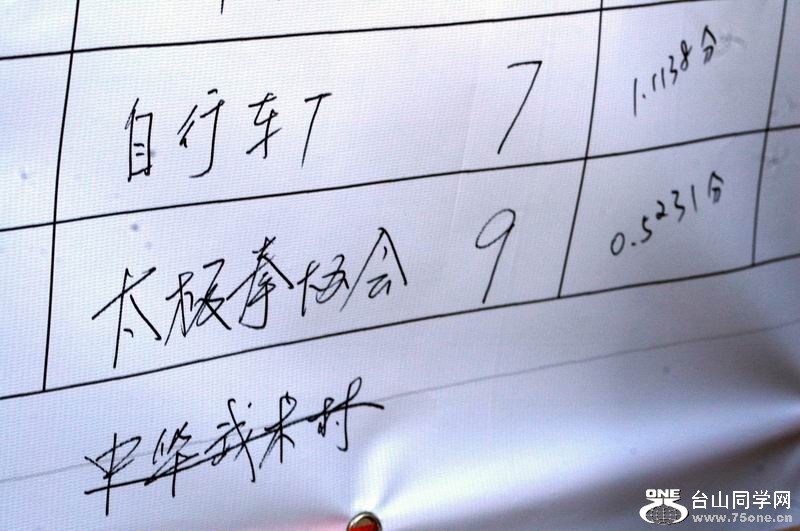 自行车厂 7 1.1138分
太极拳协会 9 0.5231分
中华武术村
ONE 台山同学网
www.75one.cn